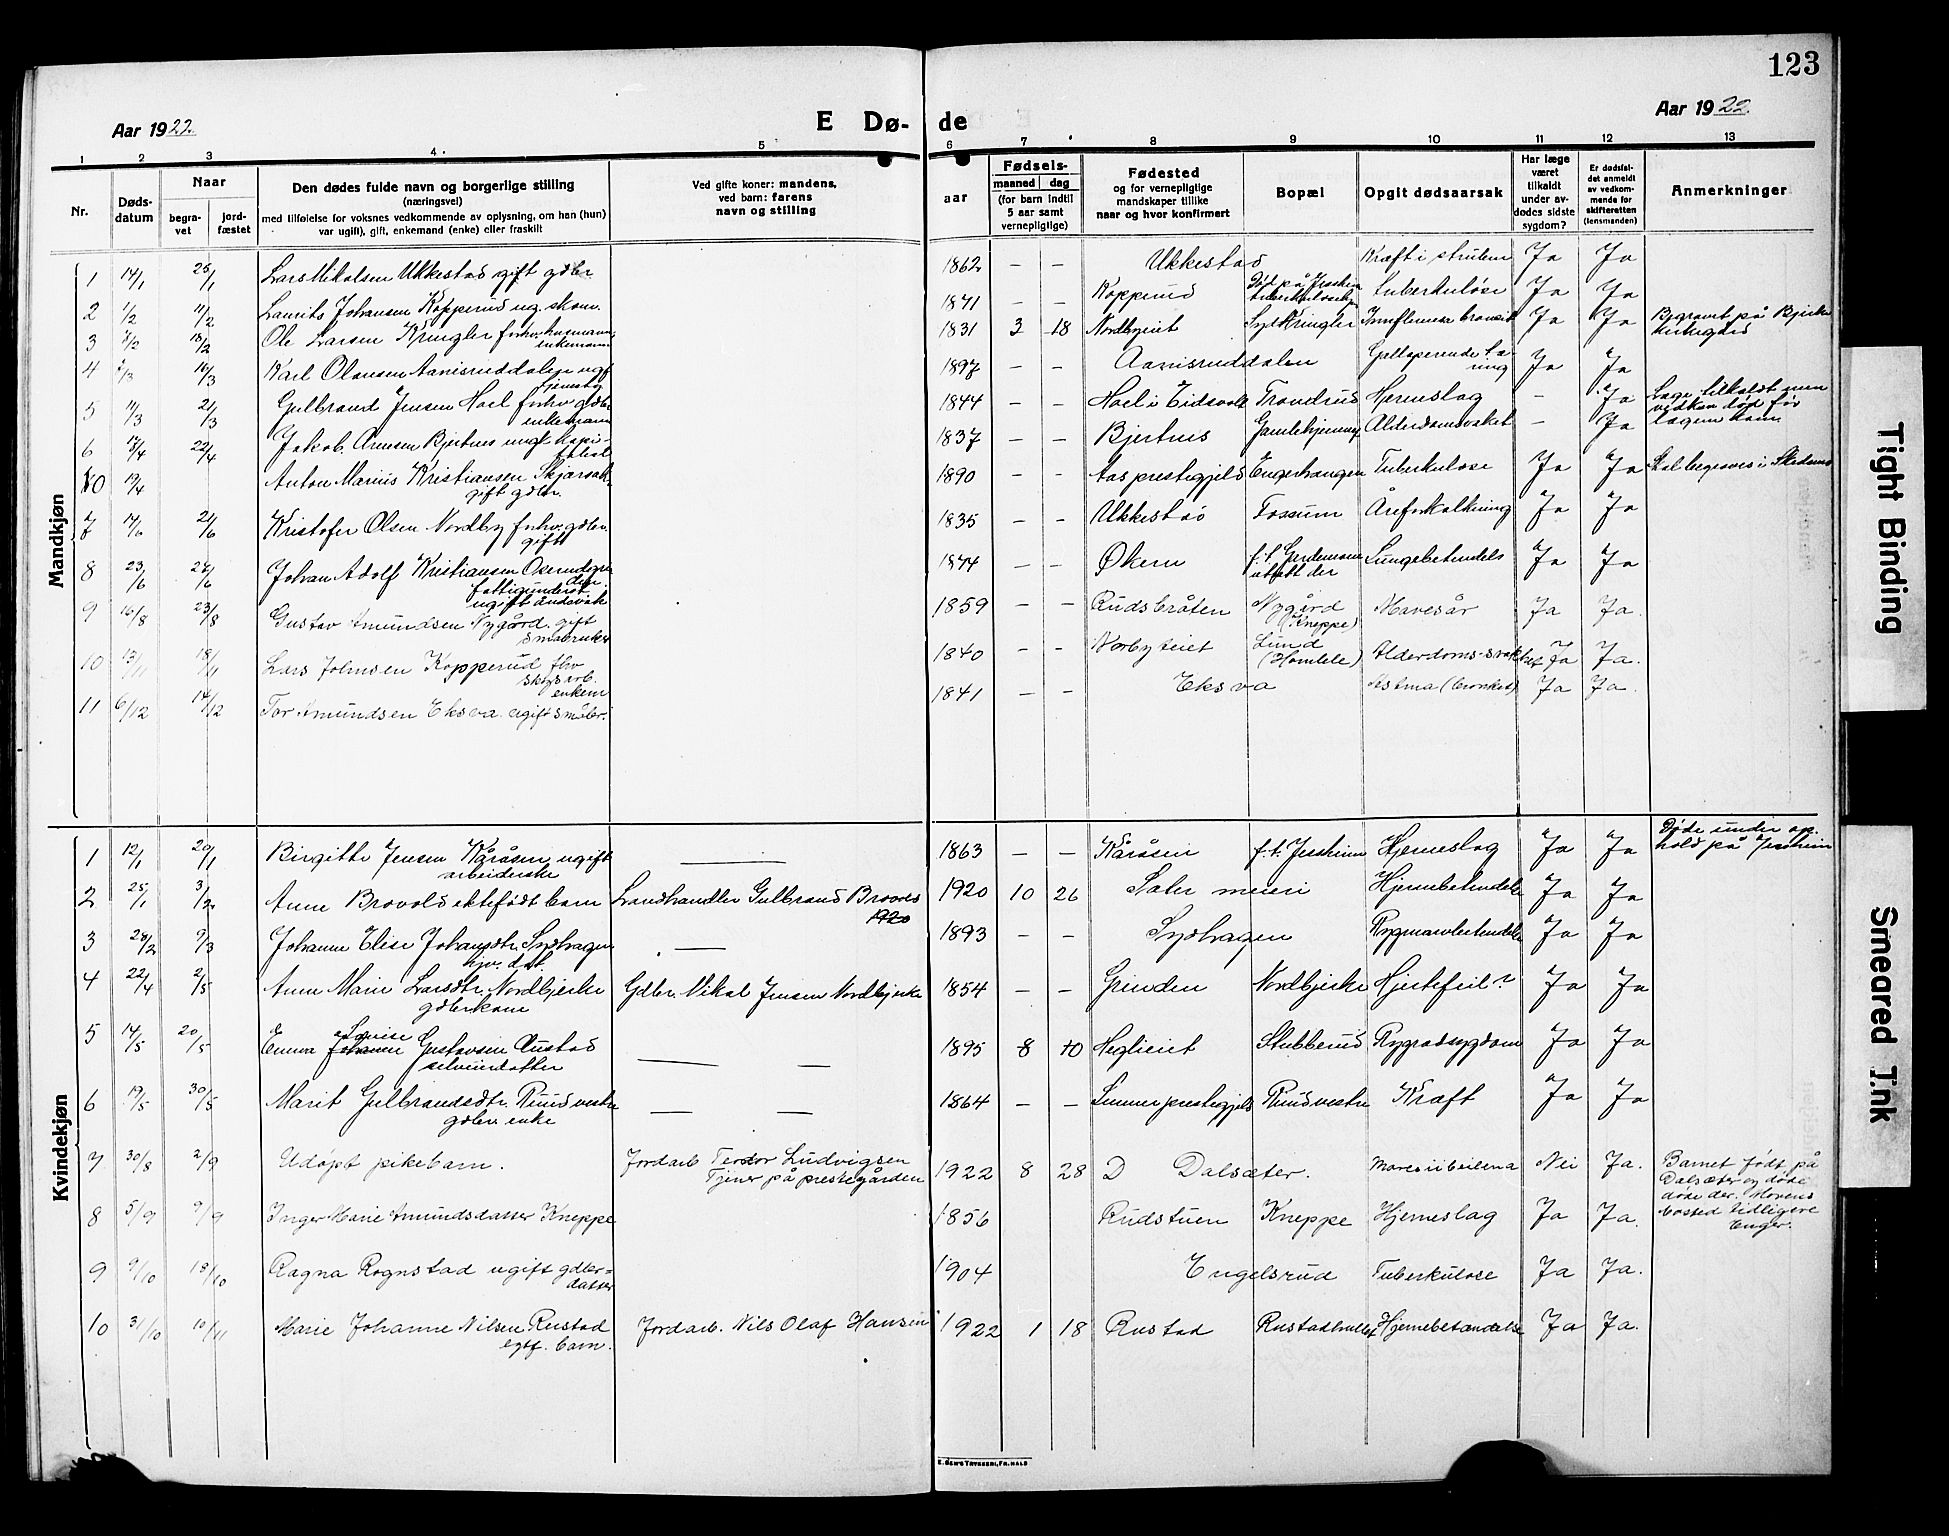 123
Aar 1922.
E Dø-de
Aar 1922
1 2 3 4 5 6 7 8 9 10 11 12 13
Nr.
Døds-
datum
Naar
begra-
vet
jord-
fæstet
Den dødes fulde navn og borgerlige stilling
(næringsvei)
med tilføielse for voksnes vedkommende av oplysning, om han (hun)
var ugift), gift, enkemand (enke) eller fraskilt
Ved gifte koner: mandens,
ved barn: farens
navn og stilling
aar
Fødsels-
maaned dag
(for barn indtil
5 aar samt
vernepligtige)
Fødested
og for vernepligtige
mandskaper tillike
naar og hvor konfirmert
Bopæl
Opgit dødsaarsak
Har læge
været
tilkaldt
under av-
dødes sidste
sygdom?
Er dødsfal-
det anmeldt
av vedkom-
mende for
skifteretten
(lensmanden)
Anmerkninger
Mandkjøn
1 14/1 25/1 Lars Nikolsen Ukkestad gift gdbr 1862 – – Ukkestad Kræft i strupen Ja Ja
2 1/2 11/2 Laurits Johansen Kopperud ug. skom. 1871 – – Kopperud Død på Jessheim Tuberkuloschj. Tuberkulose Ja Ja
3 7/2 18/2 Ole Larsen Kringler fhv. husmann, enkemann 1831 3 18 Nordbyeiet Syd Kringler Innfluensa bronsit Ja Ja Begravet på Bjerke kirkegård
4 2/3 16/3 Karl Olausen Aanisruddalen ugf. 1897 – – Aanisruddalen Galloperende tæring Ja Ja
5 11/3 21/3 Gulbrand Jensen Hoel fhv. gdbr enkemann 1844 – – Hoel i Eidsvoll Trondrud Hjerneslag – Ja Læge tilkaldt men vedkom. død før lægen kom.
6 14/4 22/4 Jakob Arensen Bjertnes ungk. 1837 – – Bjertnes Gamlehjemmet Alderdomssvakhet – Ja
10 19/4 Anton Marius Kristiansen gift gdbr. 1890 – – Aas prestegjeld Engerhaugen Tuberkulose Ja Ja Skal begraves i Skedsmo
7 14/6 21/6 Kristofer Olsen Nordby fhv. gdbr. gift 1835 – – Ukkestad Fossum Åreforkalkning Ja Ja
8 23/6 28/6 Johan Adolf Kristiansen ugift åndsvak 1874 – – Økern utsatt der Lungebetendels Ja Ja
9 16/8 23/8 Gustav Amundsen Nygård. gift småbruker 1859 – – Rudsbråten Nygård (Kneppe) Mavesår Ja Ja.
10 13/11 18/11 Lars Johnsen Kopperud fhv skogsarb. enkem 1840 – – Norbyeiet Lund (Homlele) Alderdoms-svakhet Ja Ja.
11 6/12 14/12 Tor Amundsen Eksva. ugift småbr. 1841 – – Eksva Astma (bronket) Ja Ja.
Kvindekjøn
1 12/1 20/1 Birgitte Jensen Kåråsen ugift arbeiderske — 1863 – – Kåråsen f.t. Jessheim Hjerneslag Ja Ja Døde under op-hold på Jessheim
2 25/1 3/2 Anne Brovold ektefødt barn Landhandler Gulbrand Brovold 1920 1920 10 26 Sæter meieri Hjernebetendelse Ja Ja
3 28/2 9/3 Johanne Elise Johansdtr. Sydhagen — 1893 – – Sydhagen Rygmarvbetendelse Ja Ja
4 22/4 2/5 Anne Marie Larsdtr. Nordbjerke gdbrkone Gdbr. Nikol Jensen Nordbjerke 1854 – – Grinden Nordbjerke Hjertefeil? Ja Ja
5 14/5 20/5 Emma Lovise Johanne Gustavsen Rustad — — 1895 8 10 Heglieiet Stubberud Rygradsygdom Ja Ja
6 19/5 30/5 Marit Gulbrandsdtr. Ruud vestre gdbr. enke — — 1864 – – Lunner prestegjeld Ruud vestre Kræft Ja Ja
7 30/8 2/9 Udöpt pikebarn. Jordarb Teodor Ludvigsen Tjener på prestegården 1922 8 28 D Dalsæter. Nei Ja. Barnet født på Dalsæter og døde der. Morens bosted tidligere Enger.
8 5/9 9/9 Inger Marie Amundsdatter Kneppe 1856 Rudstuen Kneppe Hjerneslag Ja Ja.
9 9/10 18/10 Ragna Rognstad ugift gdbr-datter 1904 Engelsrud Tuberkulose Ja Ja.
10 31/10 10/11 Marie Johanne Nilsen Rustad egtf. barn. Jordarb. Nils Olaf Hansen 1922 1 18 Rustad Rustadhullet Hjernebetændelse Ja Ja.
E. SEM'S TRYKKERI, FR.HALD
Tight Binding
Smeared Ink